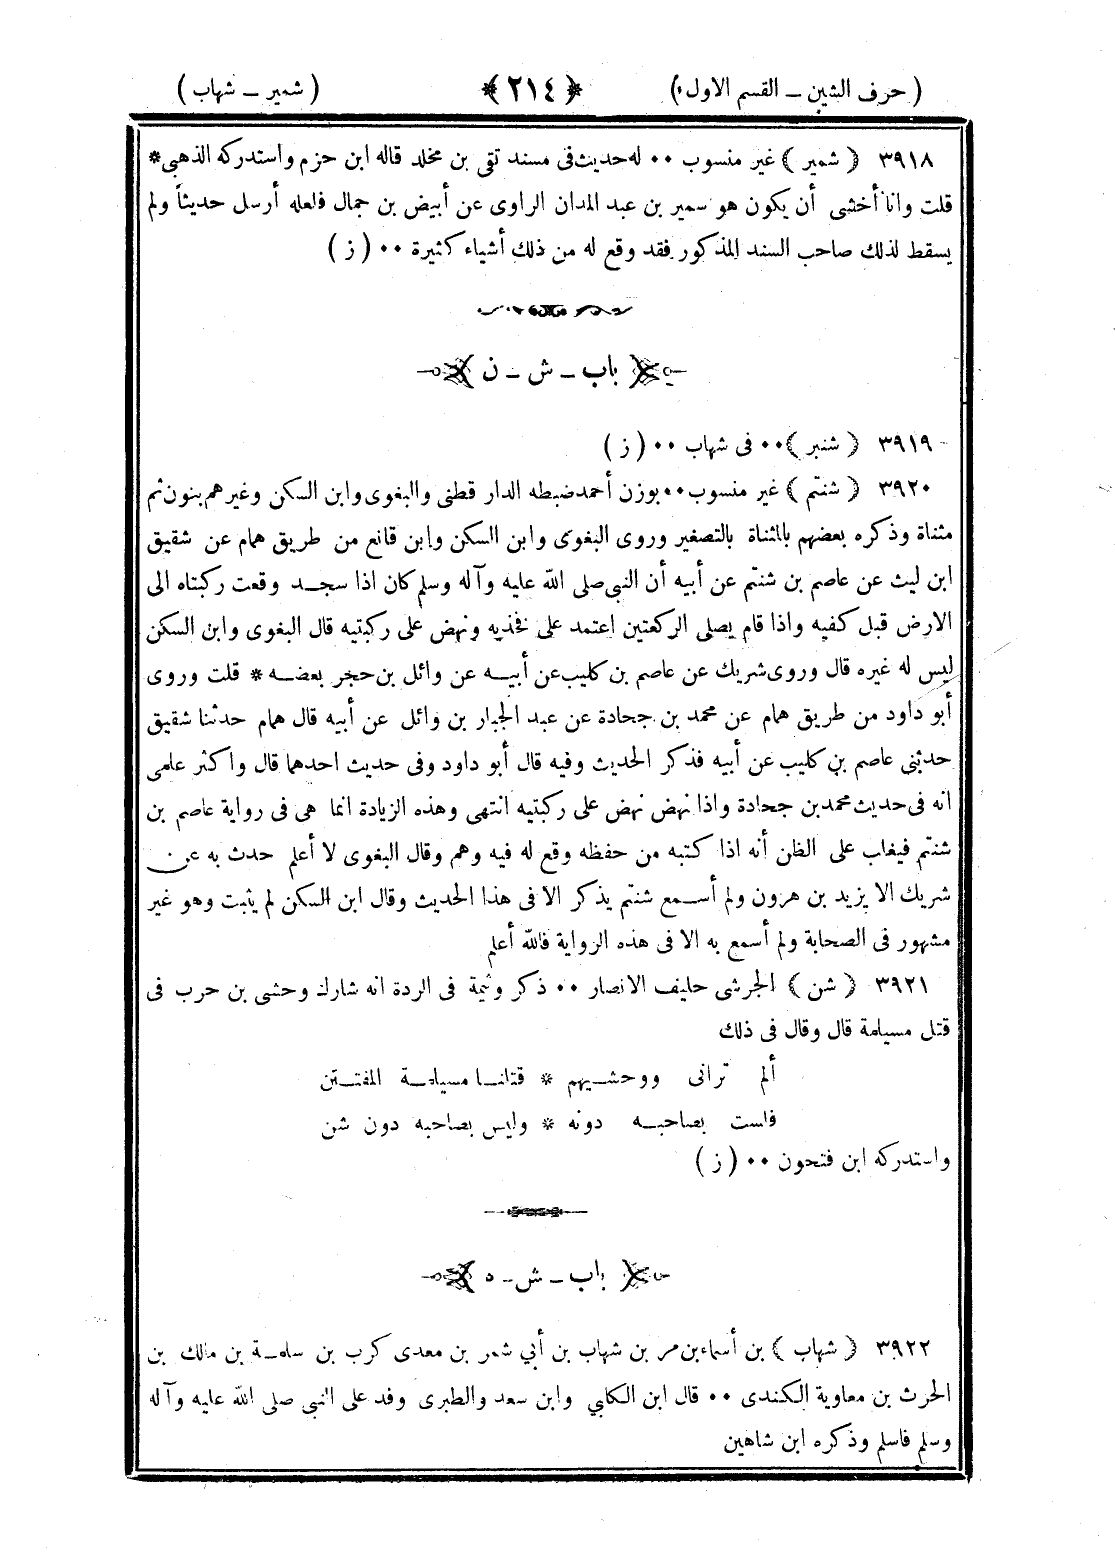 ( حرف الشين ــ القسم الاول ) ﴿ ٢١٤ ﴾ ( شمير ــ شهاب )
٣٩١٨ ﴿ شمير ﴾ غير منسوب ٠٠ له حديث فى مسند تقى بن مخلد قاله ابن حزم واستدركه الذهبى *
قلت وانا أخشى أن يكون هو سمير بن عبد المدان الراوى عن أبيض بن جمال فلعله أرسل حديثاً ولم
يسقط لذلك صاحب السند المذكور فقد وقع له من ذلك أشياء كثيرة ٠٠ ( ز )
باب ــ ش ــ ن
٣٩١٩ ﴿ شنبر ﴾ ٠٠ فى شهاب ٠٠ ( ز )
٣٩٢٠ ﴿ شنتم ﴾ غير منسوب ٠٠ بوزن أحمد ضبطه الدار قطنى والبغوى وابن السكن وغيرهم بنون ثم
مثناة وذكره بعضهم بالمثناة بالتصغير وروى البغوى وابن السكن وابن قانع من طريق همام عن شقيق
ابن ليث عن عاصم بن شنتم عن أبيه أن النبى صلى الله عليه وآله وسلم كان اذا سجد وقعت ركبتاه الى
الارض قبل كفيه واذا قام يصلى الركعتين اعتمد على فخذيه ونهض على ركبتيه قال البغوى وابن السكن
ليس له غيره قال وروى شريك عن عاصم بن كليب عن أبيه عن وائل بن حجر بعضه * قلت وروى
أبو داود من طريق همام عن محمد بن جحادة عن عبد الجبار بن وائل عن أبيه قال همام حدثنا شقيق
حدثنى عاصم بن كليب عن أبيه فذكر الحديث وفيه قال أبو داود وفى حديث احدهما قال واكثر علمى
انه فى حديث محمد بن جحادة واذا نهض نهض على ركبتيه انتهى وهذه الزيادة انما هى فى رواية عاصم بن
شنتم فيغاب على الظن أنه اذا كتبه من حفظه وقع له فيه وهم وقال البغوى لا أعلم حدث به عن
شريك الا يزيد بن هرون ولم أسمع شنتم يذكر الا فى هذا الحديث وقال ابن السكن لم يثبت وهو غير
مشهور فى الصحابة ولم أسمع به الا فى هذه الرواية فالله أعلم
٣٩٢١ ﴿ شن ﴾ الجرشى حليف الانصار ٠٠ ذكر وثيمة فى الردة انه شارك وحشى بن حرب فى
قتل مسيلمة قال وقال فى ذلك
ألم ترانى ووحشيهم * قتلنا مسيلمة المفتتن
فلست بصاحبه دونه * وليس بصاحبه دون شن
واستدركه ابن فتحون ٠٠ ( ز )
باب ــ ش ــ ه
٣٩٢٢ ﴿ شهاب ﴾ بن أسماء بن مر بن شهاب بن أبي شمر بن معدى كرب بن سلمة بن مالك بن
الحرث بن معاوية الكندى ٠٠ قال ابن الكلبي وابن سعد والطبرى وفد على النبي صلى الله عليه وآله
وسلم فاسلم وذكره ابن شاهين